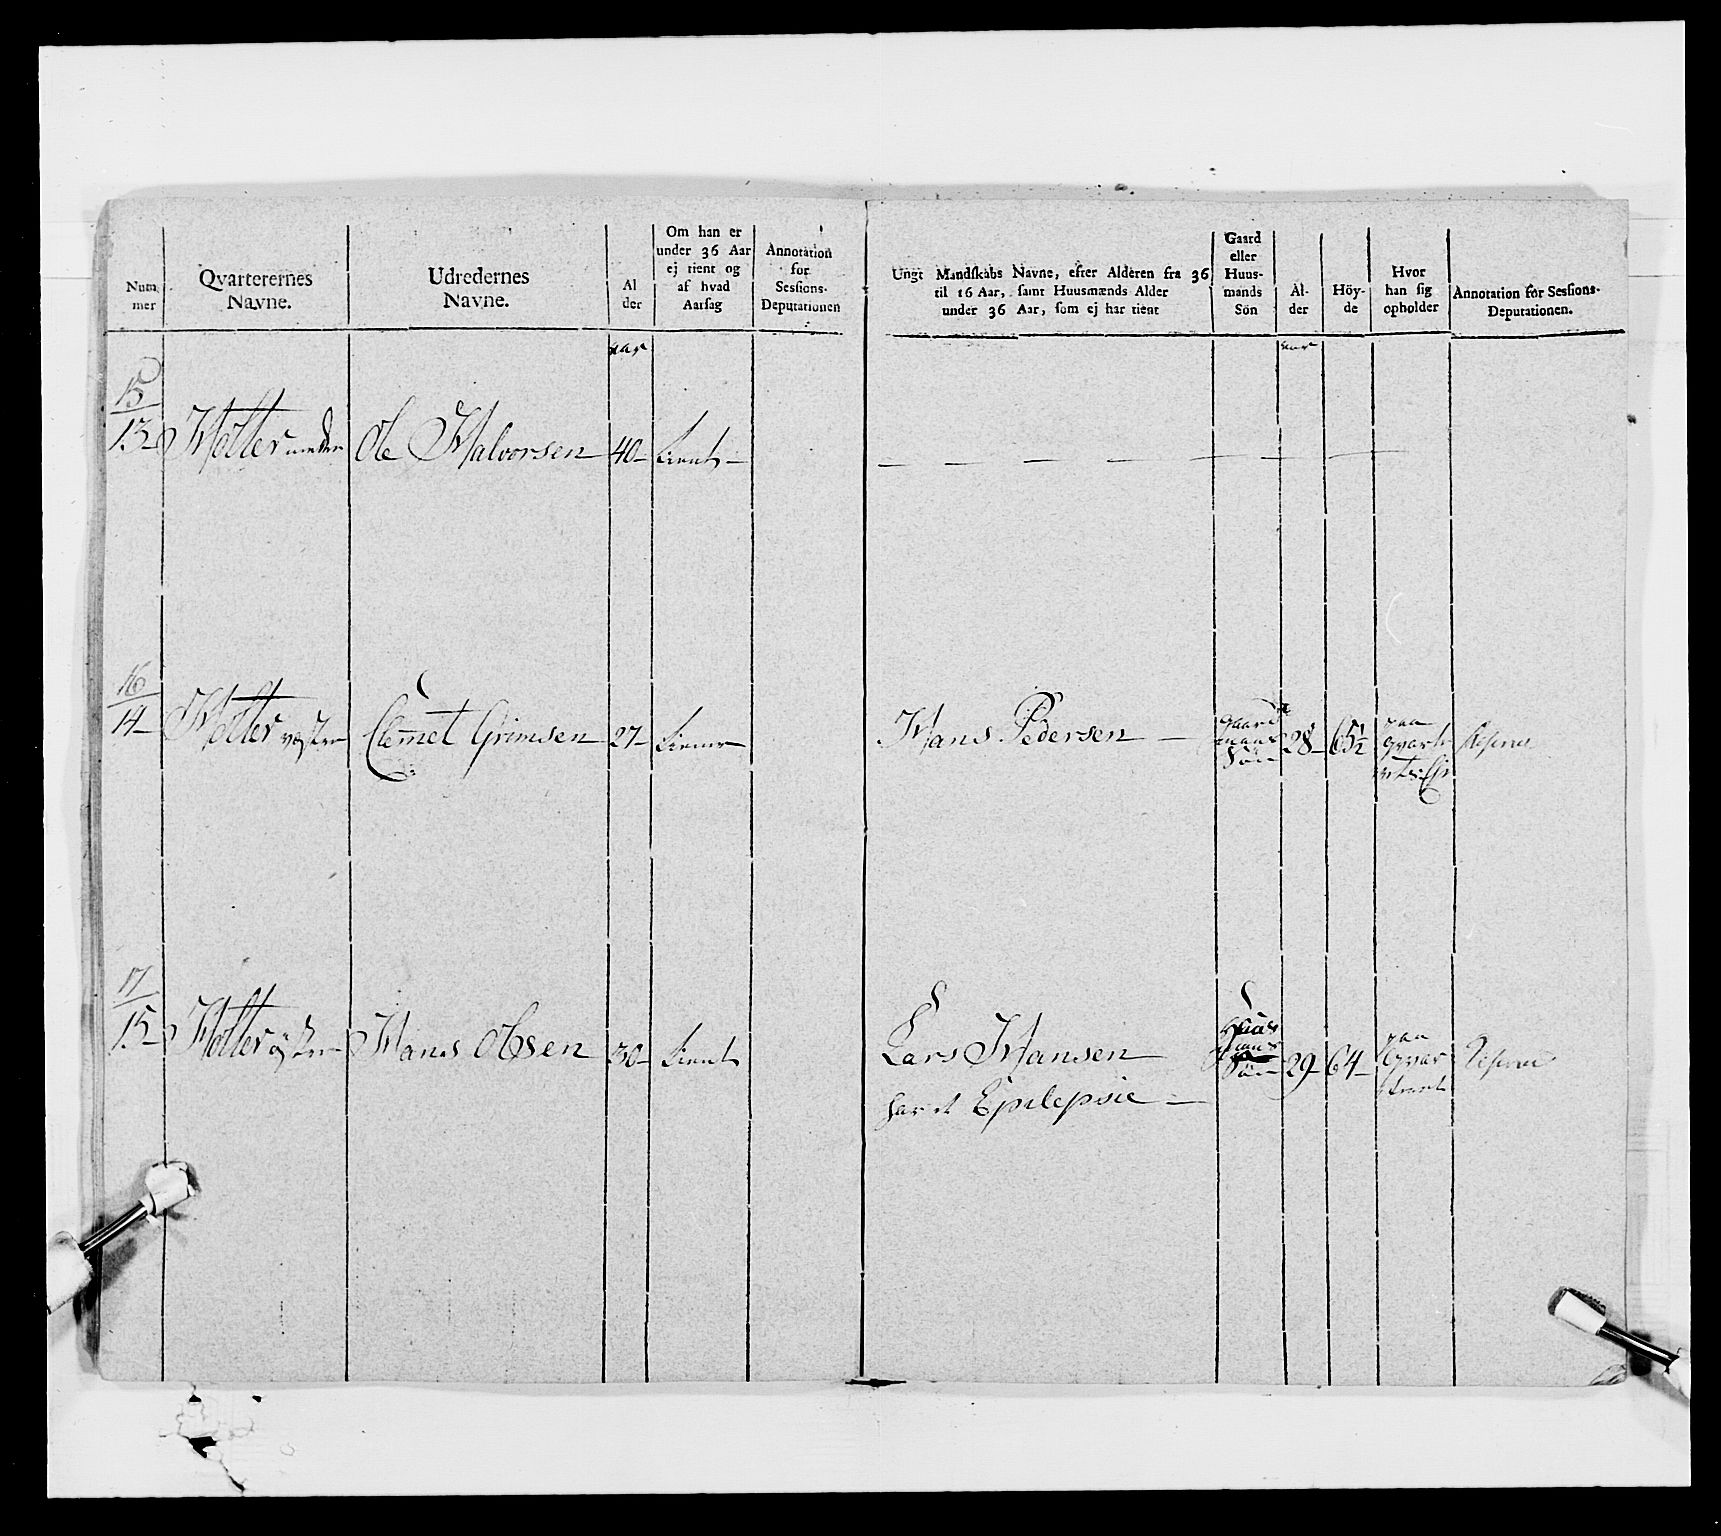 Num
mer
Qvarterernes
Navne.
Udredernes
Navne.
Al
der
Om han er
under 36 Aar
ej tient og
af hvad
Aarsag
Annotation
for
Sessions-
Deputationen
Ungt Mandskabs Navne, efter Alderen fra 36
til 16 Aar, samt Huusmænds Alder
under 36 Aar, som ej har tient
Gaard
eller
Huus-
mands
Søn
Al-
der
Höy-
de
Hvor
han sig
opholder
Annotation for Sessions-
Deputationen.
aar
aar
15
13 Holter neder Ole Halvorsen 40 tient
16
14 Holter vester Clemet Grimsen 27 Hans Pedersen
gaard
mans
Søn
28 65½
paa
qvart
17
15 Holter øster Hans Olsen 30 tient Lars Hansen
har et Epilepsie
Huus
mans
Søn
29 64
paa
qvar
teret